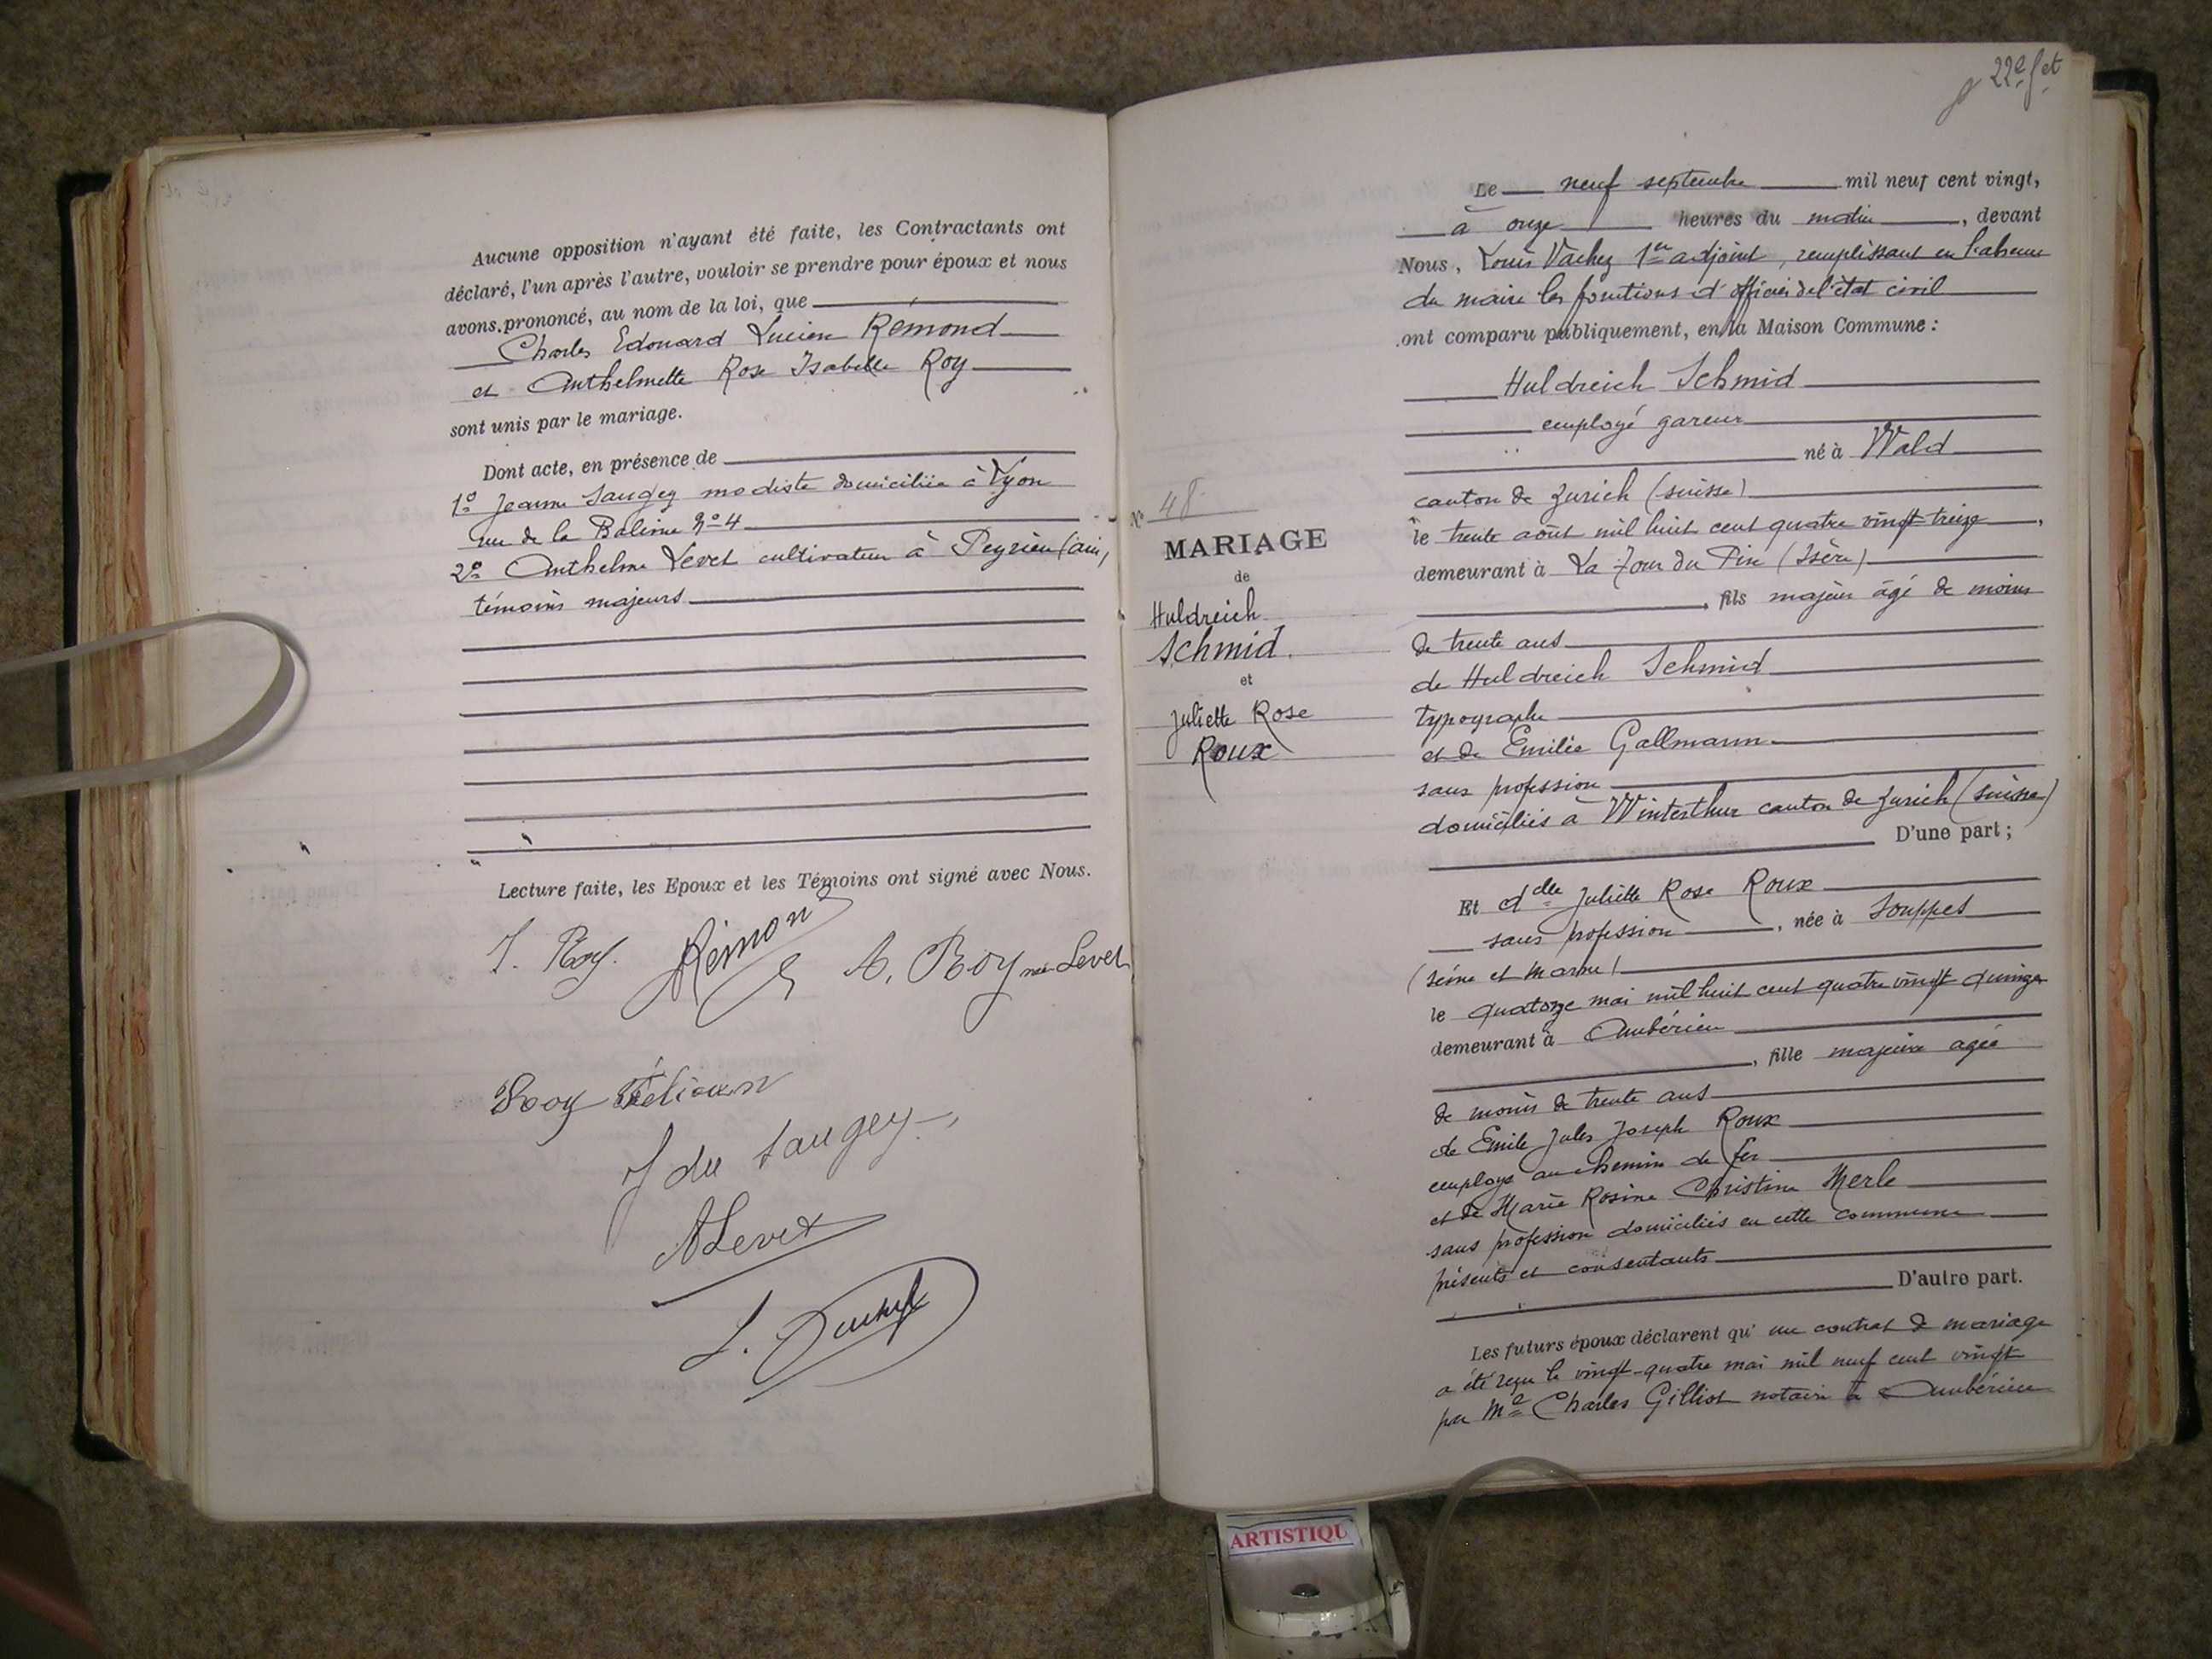 Aucune opposition n'ayant été faite, les Contractants ont
déclaré, l'un après l'autre, vouloir se prendre pour époux et nous
avons prononcé, au nom de la loi, que
Charles Edouard Lucien Rémond
et Anthelmette Rose Isabelle Roy
sont unis par le mariage.
Dont acte, en présence de
1º Jeanne Saugey modiste domiciliée à Lyon
rue de la Baleine Nº 4
2º Anthelme Levet cultivateur à Peyrieu (ain)
témoins majeurs
Lecture faite, les Epoux et les Témoins ont signé avec Nous.
J. Roy. Rémond A. Roy née Levet
Roy Félicien
J du Saugey
A Levet
L.
22e f et
Le neuf septembre mil neuf cent vingt,
à onze heures du matin, devant
Nous, Louis Vachez 1er adjoint, remplissant en l'absence
du maire les fonctions d'officier de l'état civil
ont comparu publiquement, en la Maison Commune :
Huldreich Schmid
employé gareur
né à Wald
canton de Zurich (suisse)
le trente août mil huit cent quatre vingt treize,
demeurant à La Tour du Pin (Isère)
, fils majeur âgé de moins
de trente ans
de Huldreich Schmid
typographe
et de Emilie Gallmann
sans profession
domiciliés à Winterthur canton de Zurich (suisse)
D'une part ;
Nº 48
MARIAGE
de
Huldreich
Schmid.
et
Juliette Rose
Roux
Et dlle Juliette Rose Roux
sans profession, née à Souppes
(seine et marne)
le quatorze mai mil huit cent quatre vingt quinze
demeurant à Ambérieu
, fille majeure agée
de moins de trente ans
de Emile Jules Joseph Roux
employé au chemin de fer
et de Marie Rosine Christine Merle
sans profession domiciliés en cette commune
présents et consentants
D'autre part.
Les futurs époux déclarent qu' un contrat de mariage
a été reçu le vingt-quatre mai mil neuf cent vingt
par Me Charles Gilliot notaire à Ambérieu
ARTISTIQU